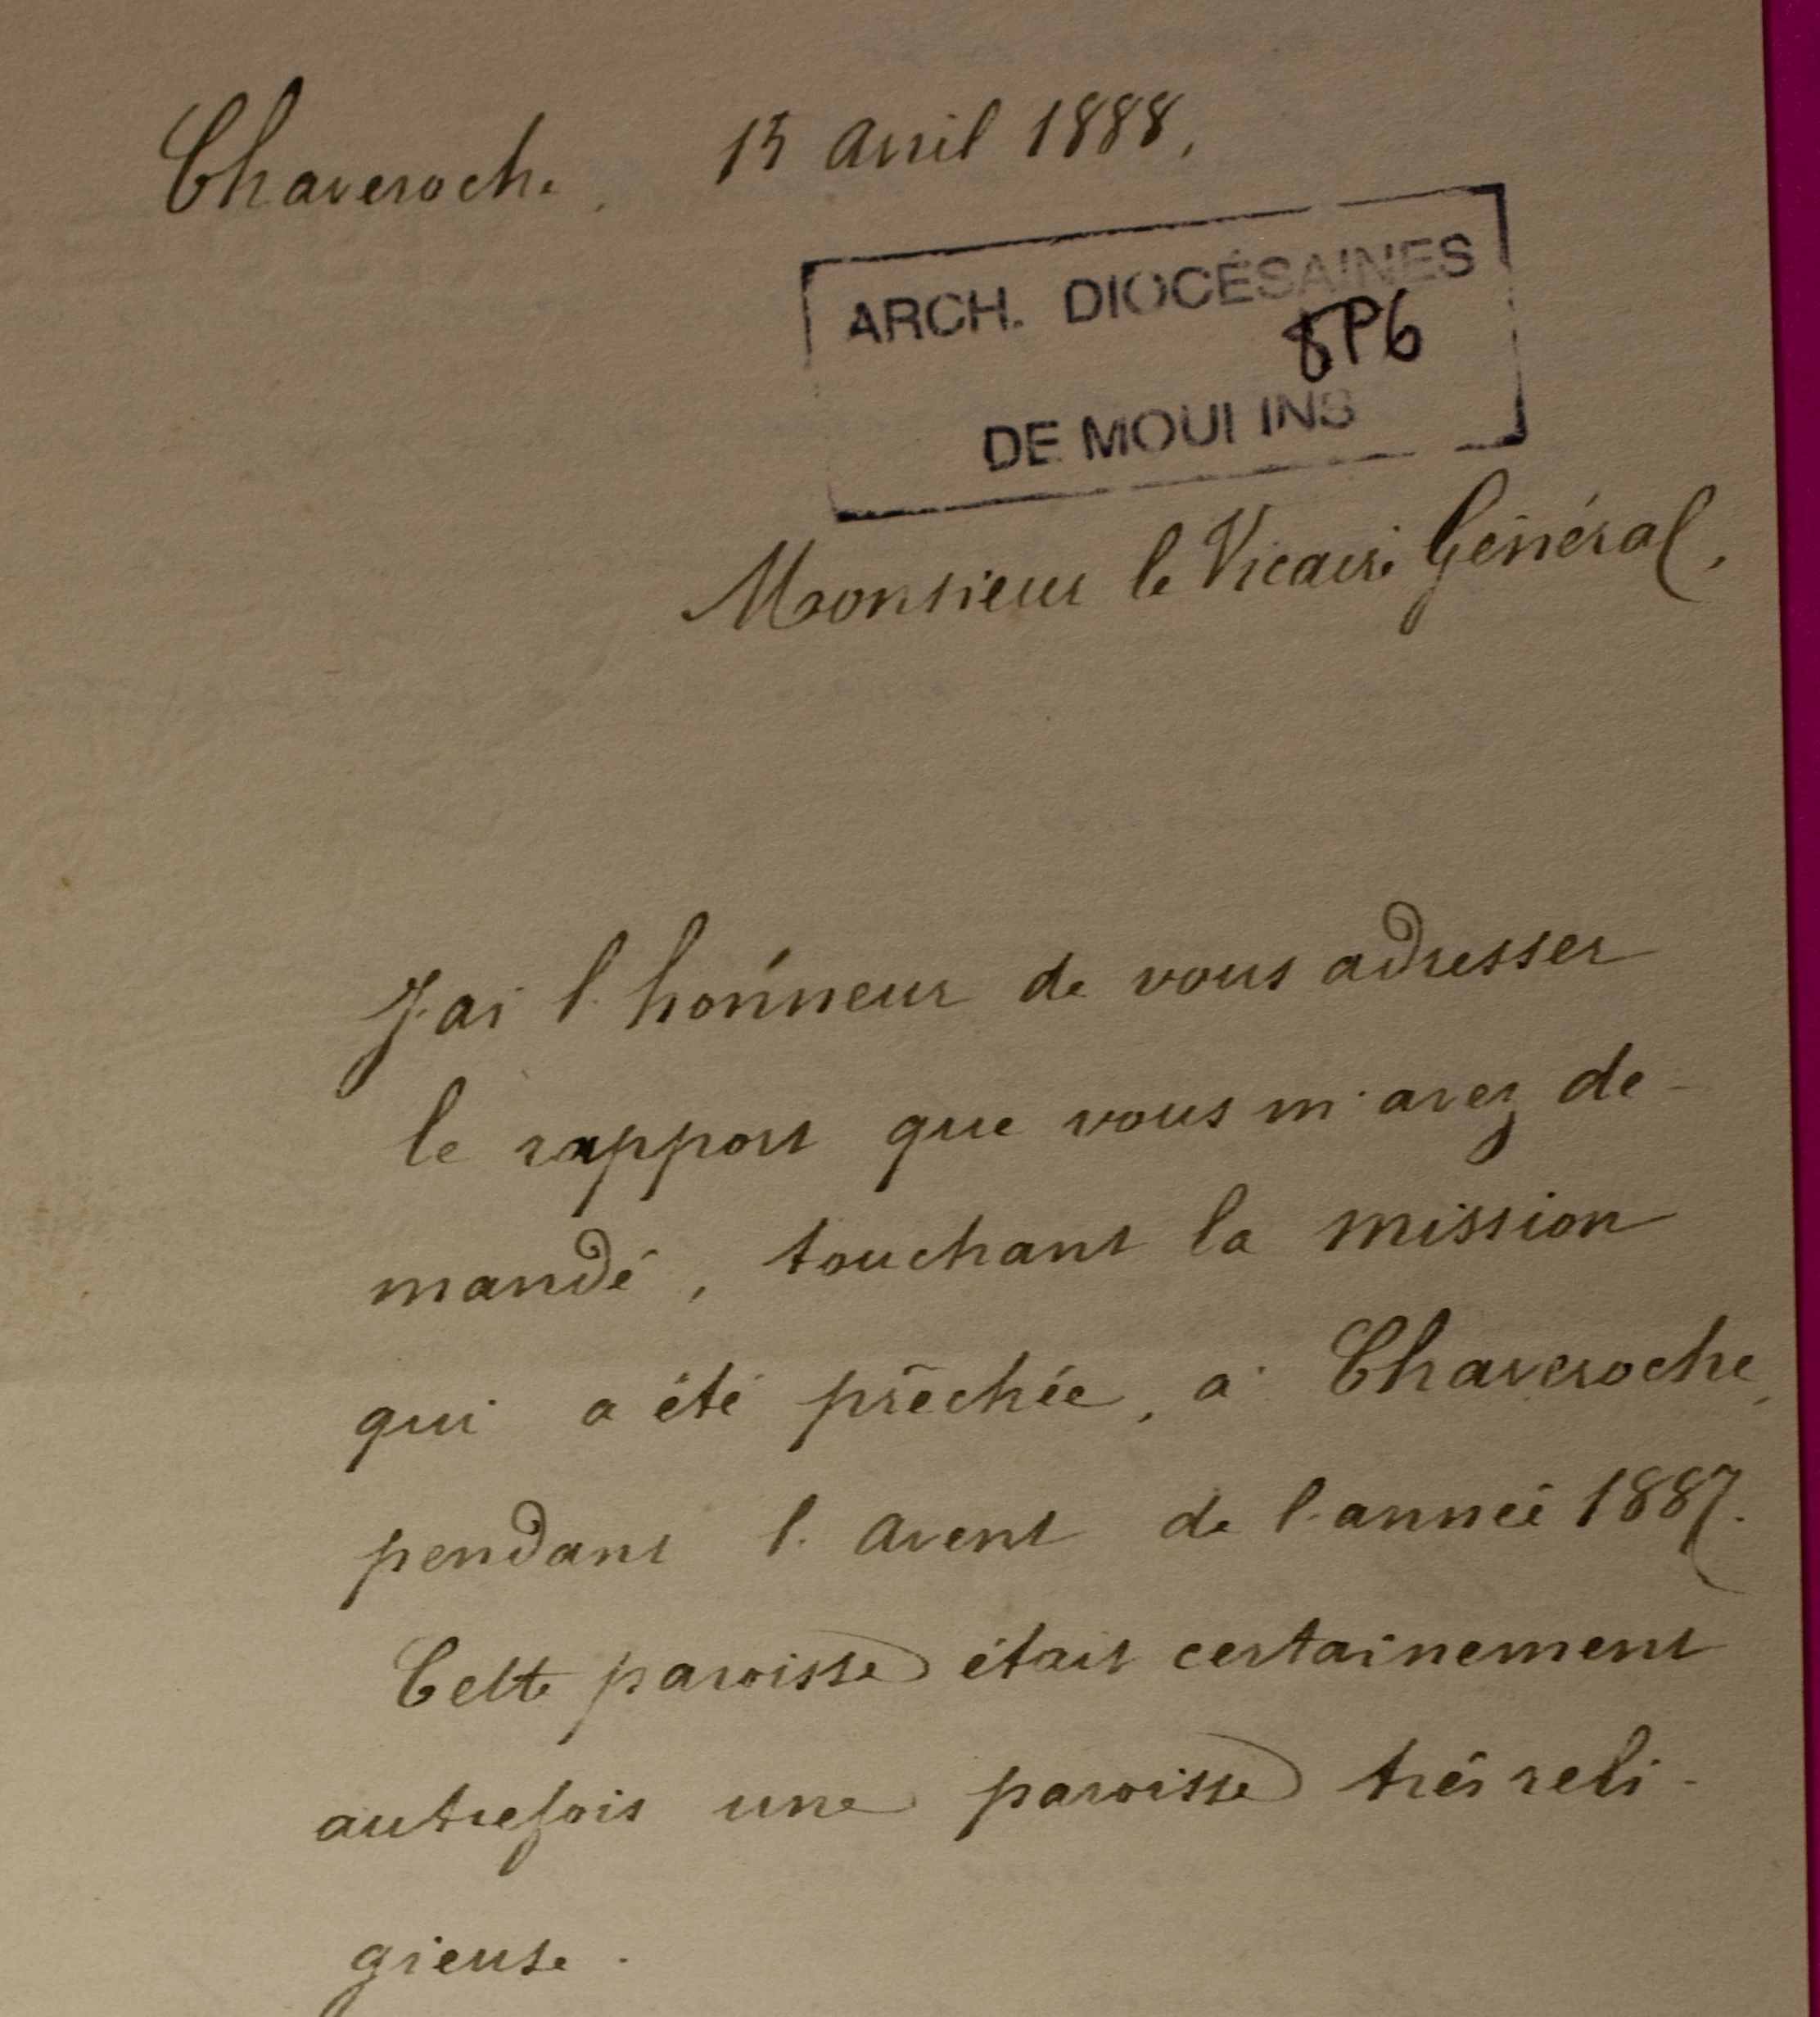 Chaveroche. 15 Avril 1888.
ARCH. DIOCÉSAINES
8P6
DE MOULINS
Monsieur le Vicaire Général,
J'ai l'honneur de vous adresser
le rapport que vous m'avez de-
mandé, touchant la mission
qui a été prêchée, à Chaveroche,
pendant l'Avent de l'année 1887.
Cette paroisse était certainement
autrefois une paroisse très reli-
gieuse.